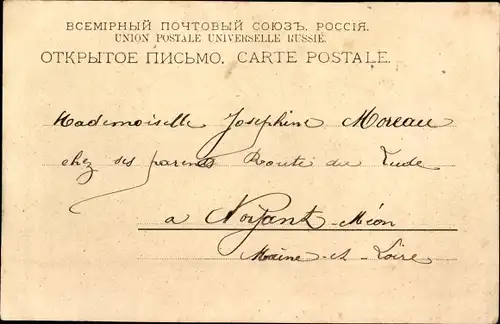 ВСЕМІРНЫЙ ПОЧТОВЫЙ СОЮЗЪ. РОССІЯ.
UNION POSTALE UNIVERSELLE RUSSIE.
ОТКРЫТОЕ ПИСЬМО. CARTE POSTALE.
Mademoiselle Josephine Moreau
chez ses parents Route du Lude
a Noyant-Méon
Maine-et-Loire